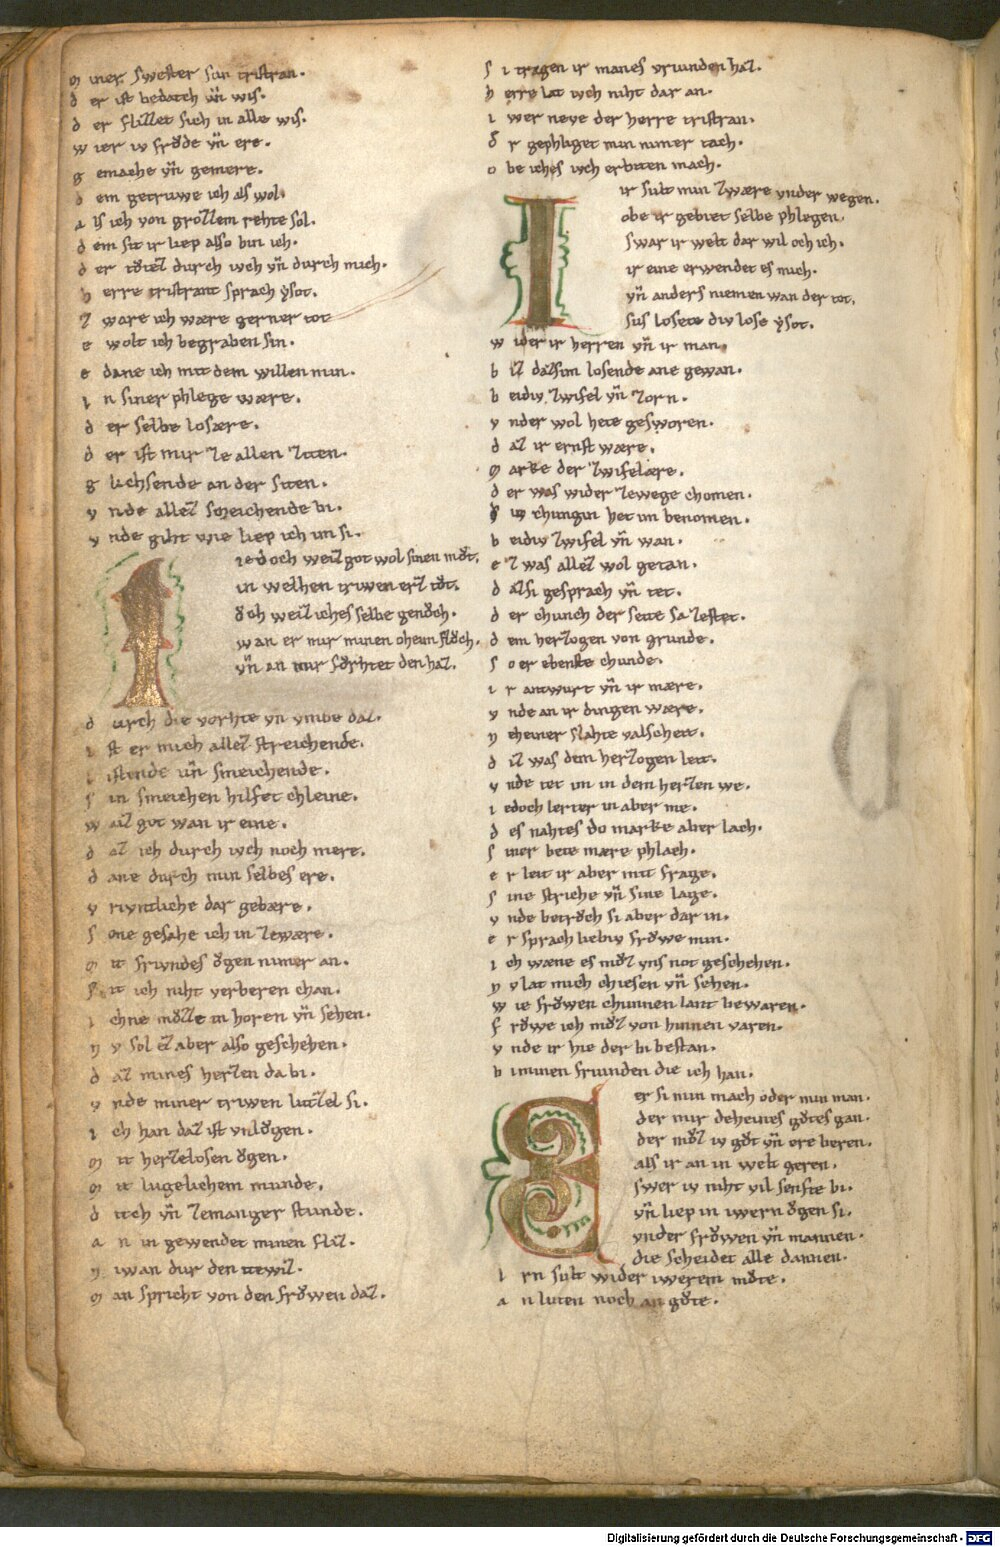 m iner swester sun tristran.
d er ist bedaech vn̄ wis.
d er flizzet sich in alle wis.
w ier iv frȯde vn̄ ere.
g emache vn̄ gemere.
d em getruwe ich als wol.
a ls ich von grozzem rehte sol.
d em sit ir liep also bin ich.
d er tv̊tez durch iveh vn̄ durch mich.
h erre tristrant sprach ysot.
z ware ich wære gerner tot
e wolt ich begraben sin.
e dane ich mit dem willen min.
i n siner phlege wære.
d er selbe losære.
d er ist mir ze allen ziten.
g lichsende an der siten.
v nde allez smeichende bi.
v nde giht wie liep ich im si.
iedoch weiz got wol sinen mv̊t.
in welhen triwen erz tv̊t.
ȯch weiz iches selbe genȯch.
wan er mir minen oheim slv̊ch.
vn̄ an mir fv̊rhtet den haz.
d urch die vorhte vn vmbe daz.
i st er mich allez streichende.
l istende vn̄ smeichende.
s in smeichen hilfet chleine.
w aiz got wan ir eine.
d az ich durch iveh noch mere.
d ane durch min selbes ere.
v rivntliche dar gebære.
s one gesahe ich in zewære.
m it frivndes ȯgen nimer an.
s it ich niht verberen chan.
i chne mv̊zze in horen vn̄ sehen.
n v sol ez aber also geschehen.
d az mines herzen da bi.
v nde miner triwen luzzel si.
i ch han daz ist vnlȯgen.
m it herzelosen ȯgen.
m it lugelichem munde.
d ich vn̄ zemanger stunde.
a n in gewendet minen fliz.
n iwan dur den itewiz.
m an spricht von den frȯwen daz.
s i tragen ir manes vriunden haz.
h erre lat iveh niht dar an.
i wer neve der herre tristran.
d r gephliget min nimer tach.
o be iches iveh erbiten mach.
ir sult min zwære vnder wegen.
obe ir gebiet selbe phlegen.
swar ir welt dar wil och ich.
ir eine erwendet es mich.
vn̄ anders niemen wan der tot.
sus losete div lose ysot.
w ider ir herren vn̄ ir man.
b iz dazsim losende ane gewan.
b eidiv zwifel vn̄ zorn.
v nder wol hete gesworen.
d az ir ernst wære.
m arke der zwifelære.
d er was wider zewege chomen.
d iv chungin het im benomen.
b eidiv zwifel vn̄ wan.
e z was allez wol getan.
d azsi gesprach vn̄ tet.
d er chunch der seite sa zestet.
d em herzogen von grunde.
s o er ebenste chunde.
i r antwurt vn̄ ir mære.
v nde an ir dingen wære.
n eheiner slahte valscheit.
d iz was dem herzogen leit.
v nde tet im in dem herzen we.
i edoch lerter in aber me.
d es nahtes do marke aber lach.
s iner bete mære phlach.
e r leit ir aber mit frage.
s ine striche vn̄ sine lage.
v nde betrȯch si aber dar in.
e r sprach liebiv frȯwe min.
i ch wæne es mv̊z vns not geschehen.
n v lat mich chiesen vn̄ sehen.
w ie frȯwen chunnen lant bewaren.
f rȯwe ich mv̊z von hinnen varen.
v nde ir hie der bi bestan.
b i minen friunden die ich han.
er si min mach oder min man.
der mir deheines gv̊tes gan.
der mv̊z iv gv̊t vn̄ ere beren.
als ir an in welt geren.
swer iv niht vil senfte bi.
vn̄ liep in iwern ȯgen si.
vnder frȯwen vn̄ mannen.
die scheidet alle dannen.
i rn sult wider iwerem mv̊te.
a n luten noch an gv̊te.
Digitalisierung gefördert durch die Deutsche Forschungsgemeinschaft - DFG